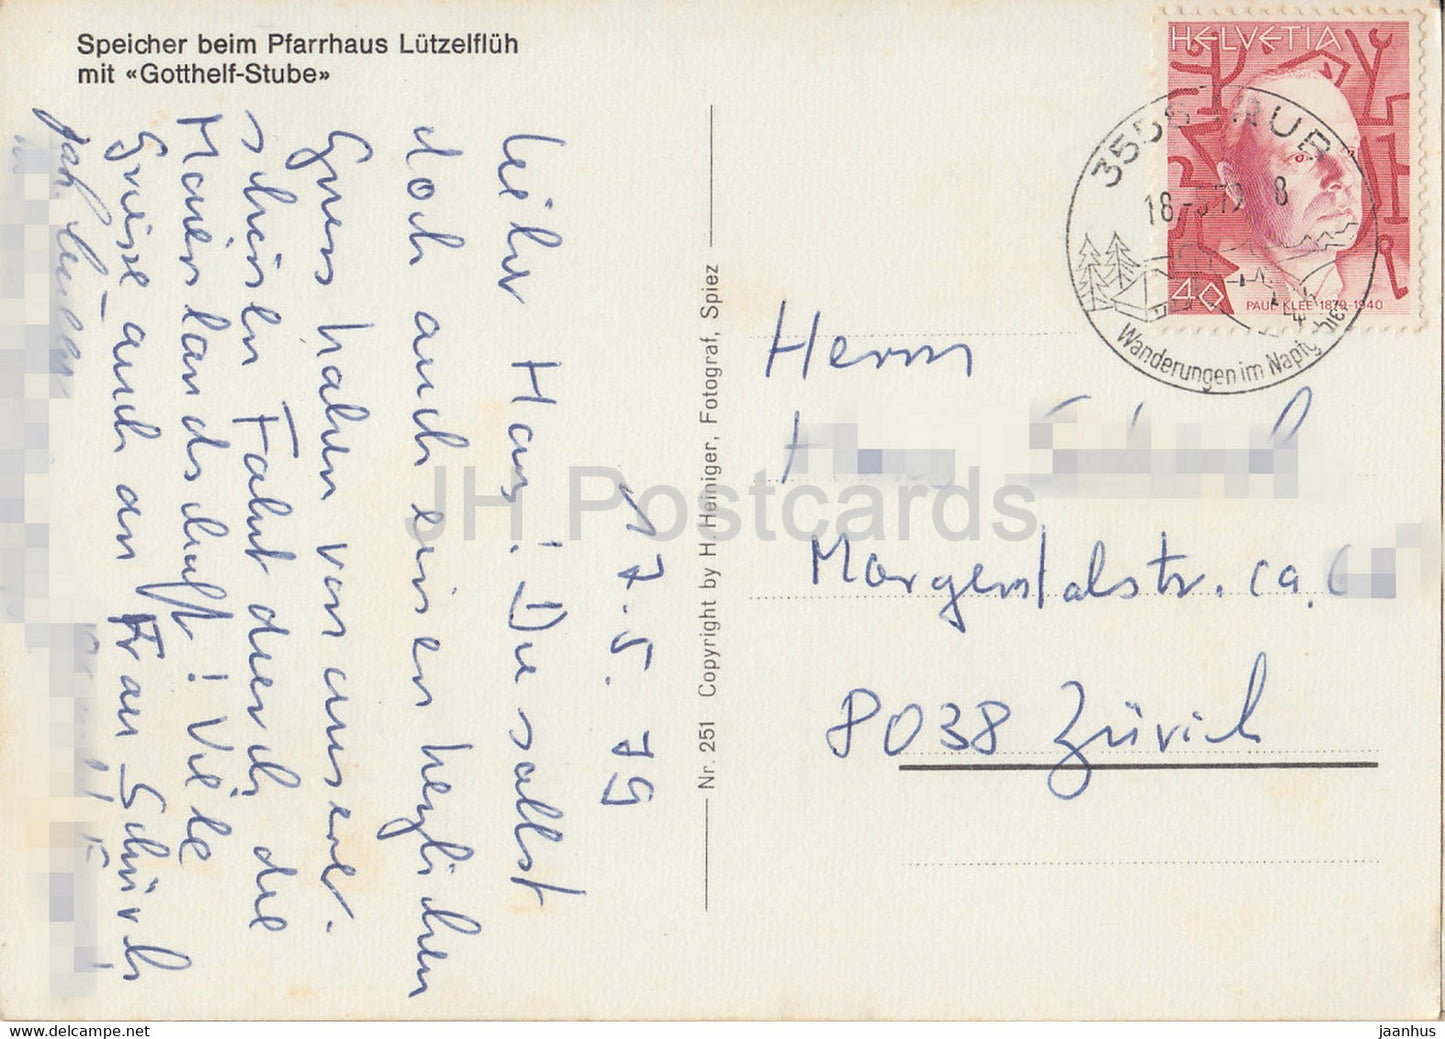 Speicher beim Pfarrhaus Lützelflüh
mit «Gotthelf-Stube»
17. 5. 79
Lieber Hans! Du sollst
doch auch einen herzlichen
Gruss haben von unserer
schönen Fahrt durch die
Maienlandschaft! Viele
Grüsse auch an Frau Schürch
Nr. 251 Copyright by H. Heiniger, Fotograf, Spiez
HELVETIA
40
PAUL KLEE 1879-1940
TRUB
18.
79
8
Wanderungen im Napfgebiet
Herrn
Morgentalstr. ca.
8038 Zürich
JH Postcards
http://www.delcampe.net
jaanhus